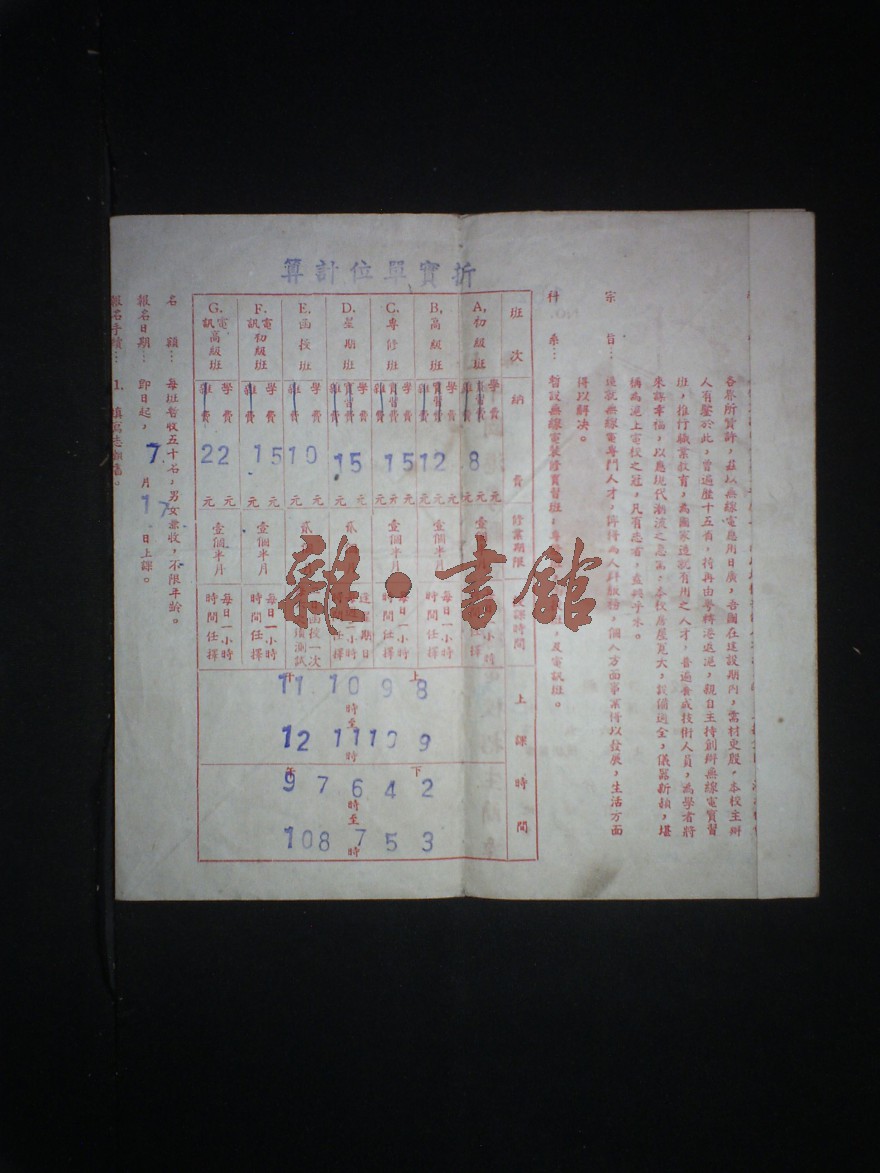 各界所贊許，茲以無線電應用日廣，吾國在建設期內，需材更殷，本校主辦
人有鑒於此，曾遍歷十五省，特再由粵轉港返滬，親自主持創辦無線電實習
班，推行職業教育，為國家造就有用之人才，普遍養成技術人員，為學者將
來謀幸福，以應現代潮流之急需，本校房屋寬大，設備週全，儀器新穎，堪
稱為滬上電校之冠，凡有志者，盍興乎來。
宗旨… 造就無線電專門人才，俾得為人群服務，個人方面事業得以發展，生活方面
得以解決。
科系… 暫設無線電裝修實習班，及電訊班。
折實單位計算
班次 納費 修業期限 上課時間
A. 初級班 學費 實習費 雜費 8 元 元 元
B. 高級班 學費 實習費 雜費 12 元 元 元 壹個半月 每日一小時 時間任擇
C. 專修班 學費 實習費 雜費 15 元 元 元 壹個半月 每日一小時 時間任擇
D. 星期班 學費 實習費 雜費 15 元 元 元
E. 函授班 學費 雜費 10 元 元
F. 電訊初級班 學費 雜費 15 元 元 壹個半月 每日一小時 時間任擇
G. 電訊高級班 學費 雜費 22 元 元 壹個半月 每日一小時 時間任擇
上午 8 9 10 11 時至 9 10 11 12 時
下午 2 4 6 7 9 時至 3 5 7 8 10 時
名額… 每班暫收五十名，男女兼收，不限年齡。
報名日期… 即日起，7月17日上課。
報名手續… 1. 填寫志願書。
雜·書館